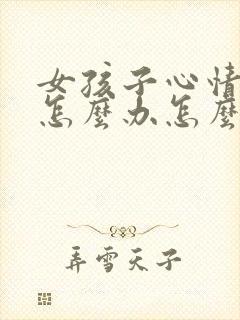 女孩子心情
怎麼办怎麼
弄雪天子